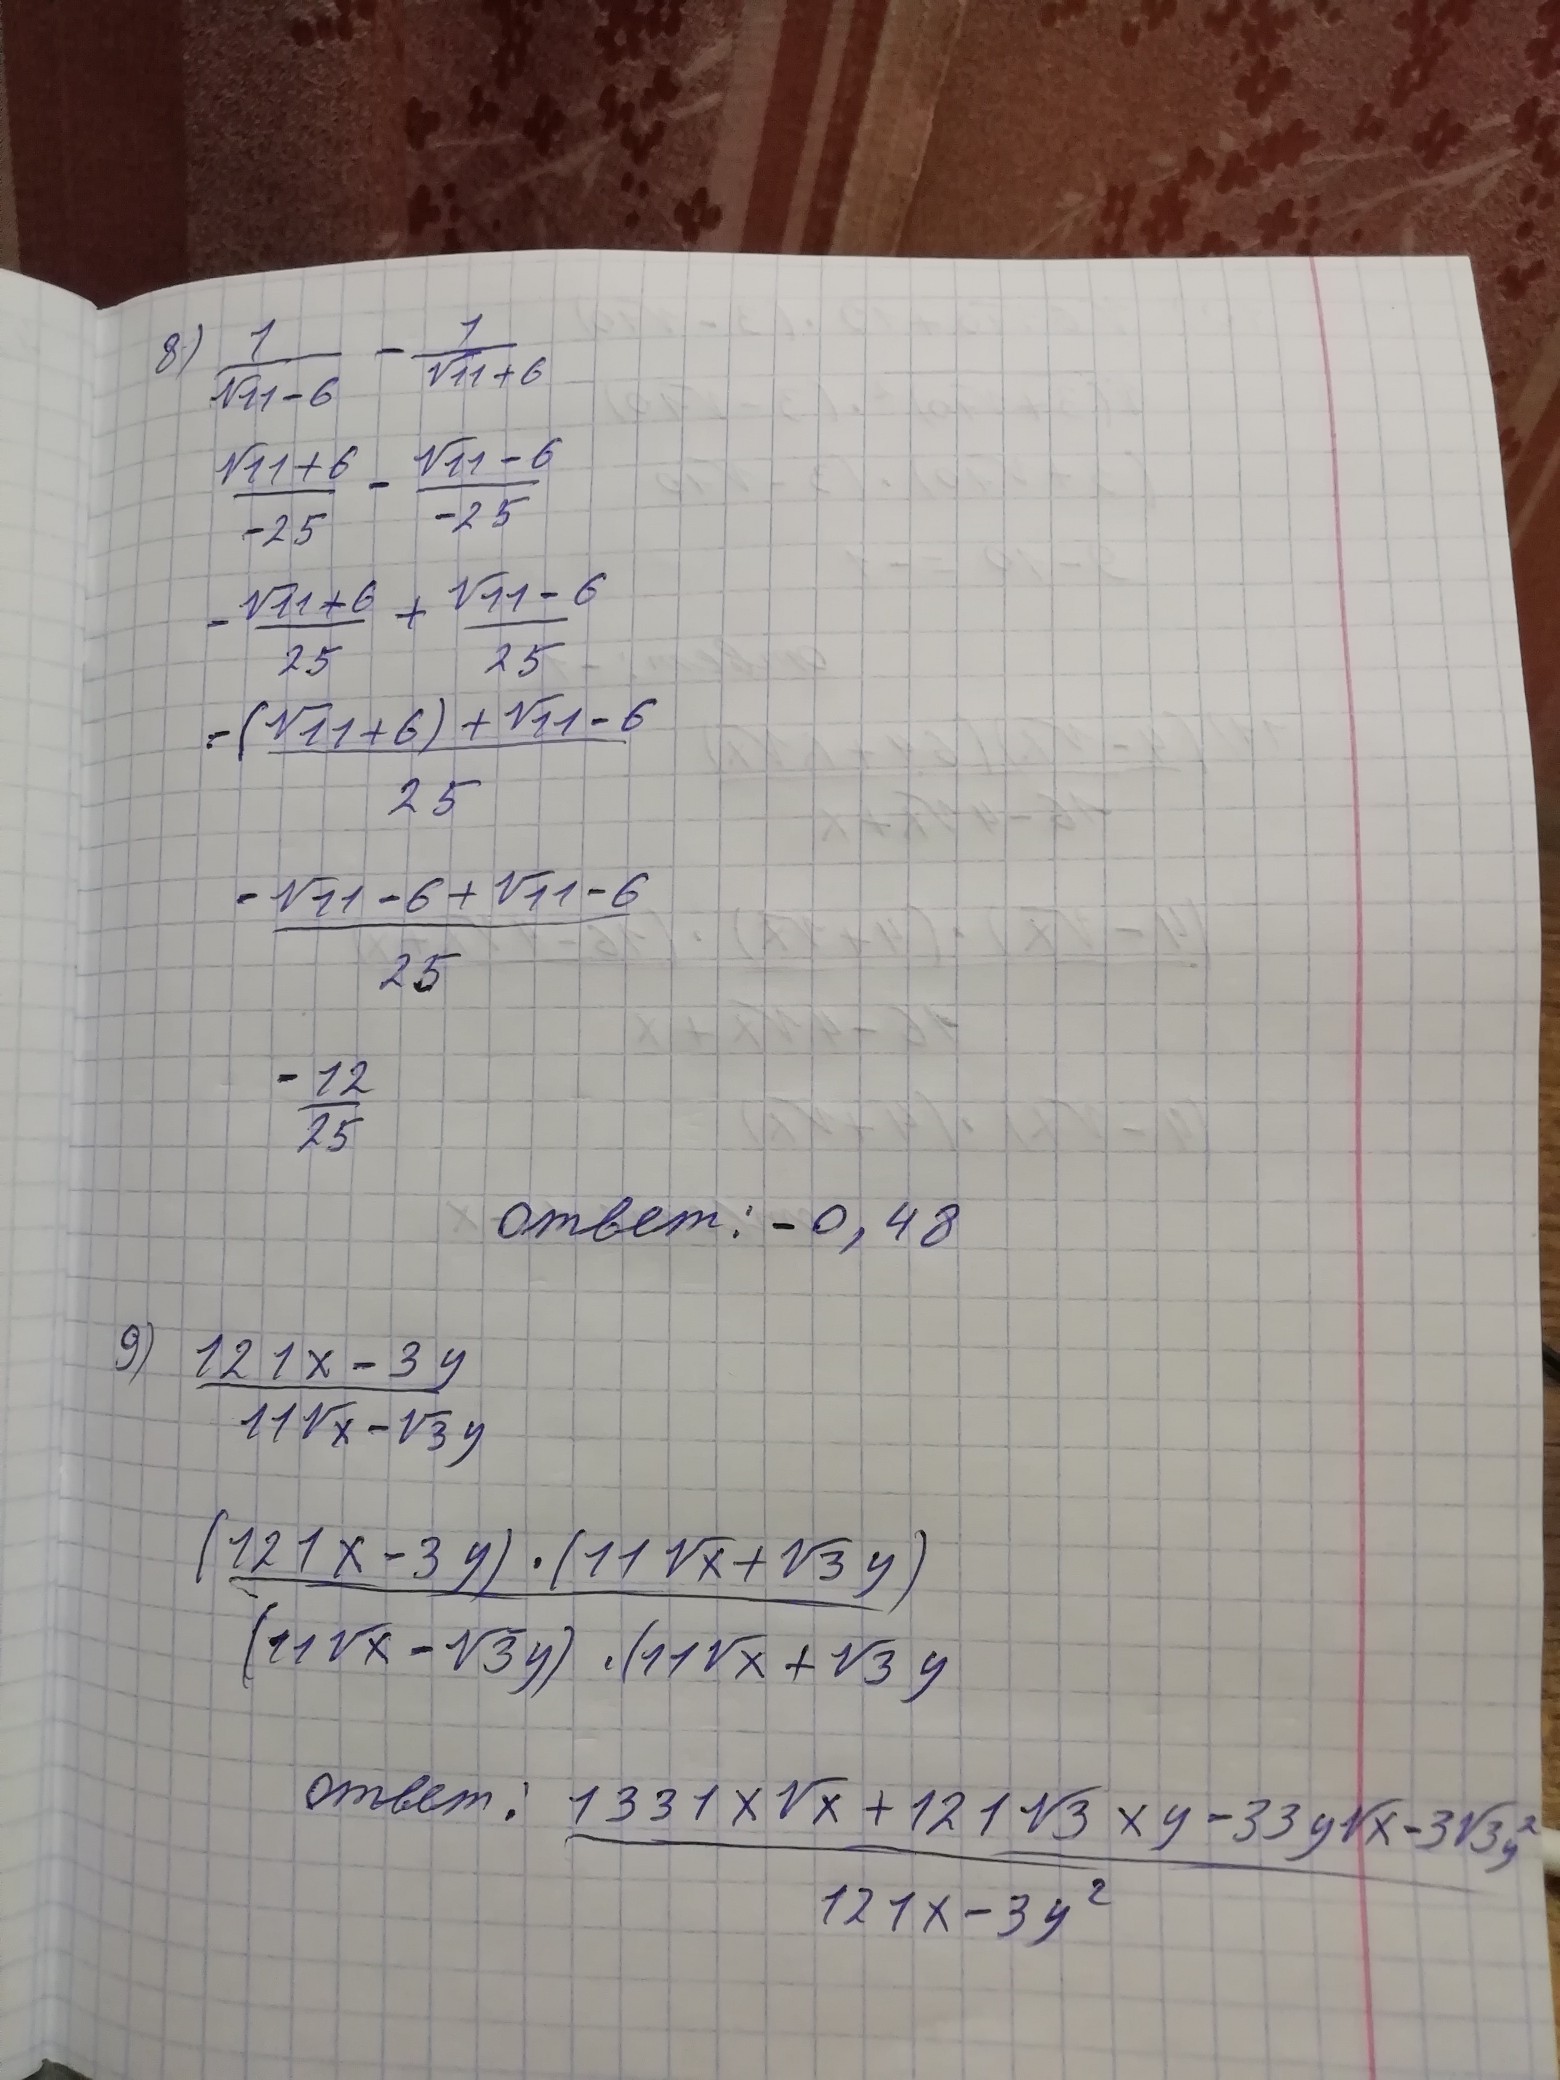 8) 1/(√11-6) - 1/(√11+6)
(√11+6)/(-25) - (√11-6)/(-25)
-(√11+6)/25 + (√11-6)/25
(-(√11+6)+√11-6)/25
(-√11-6+√11-6)/25
-12/25
ответ: -0,48
9) (121x-3y)/(11√x-√3y)
(121x-3y)·(11√x+√3y)
(11√x-√3y)·(11√x+√3y
ответ: (1331x√x+121√3xy-33y√x-3√3y²)/(121x-3y²)